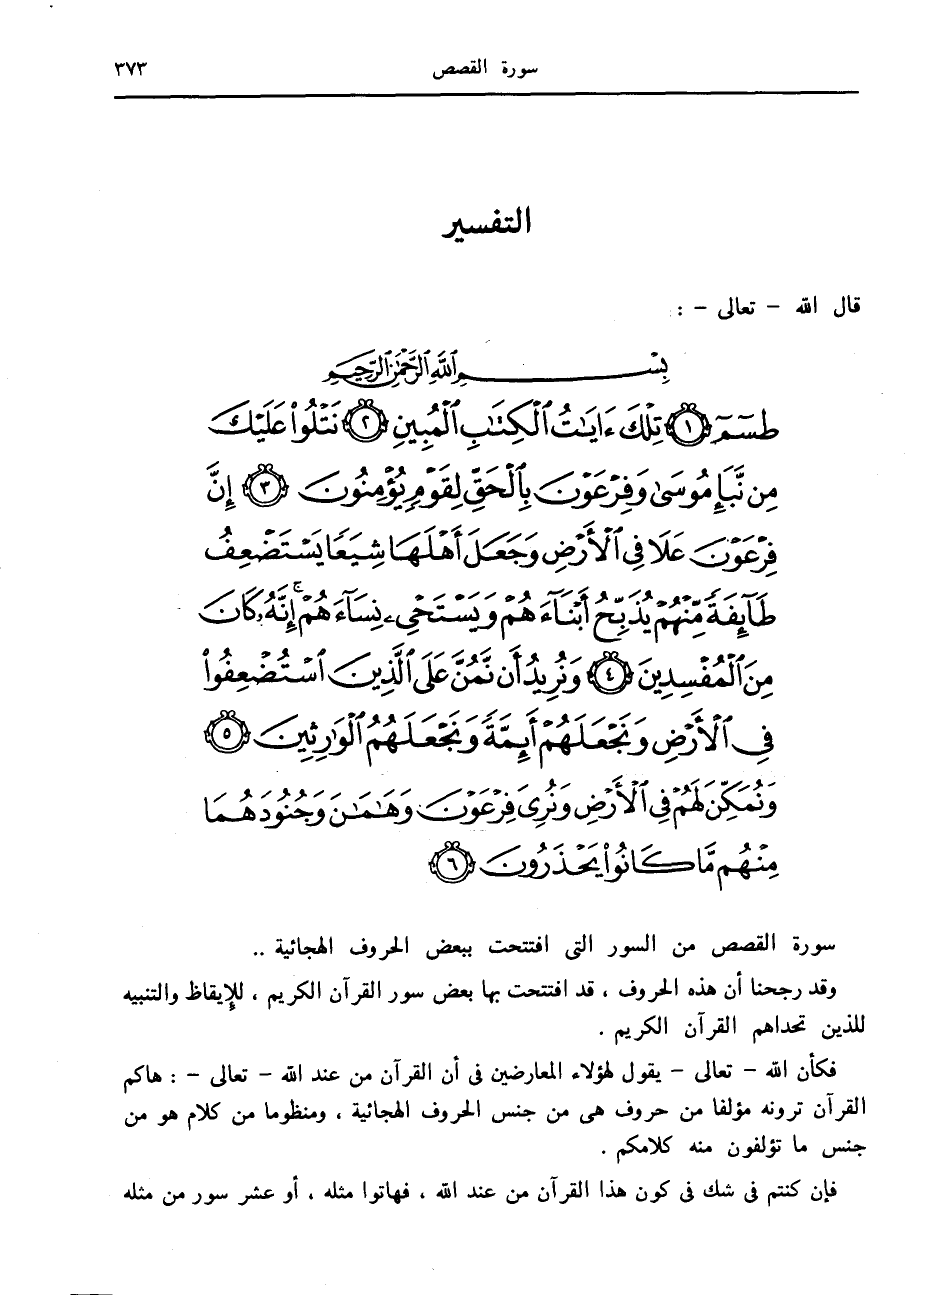 سورة القصص ٣٧٣
التفسير
قال الله – تعالى – :
بِسْمِ اللَّهِ الرَّحْمَٰنِ الرَّحِيمِ
طسٓمٓ ﴿١﴾ تِلْكَ ءَايَٰتُ ٱلْكِتَٰبِ ٱلْمُبِينِ ﴿٢﴾ نَتْلُوا۟ عَلَيْكَ
مِن نَّبَإِ مُوسَىٰ وَفِرْعَوْنَ بِٱلْحَقِّ لِقَوْمٍ يُؤْمِنُونَ ﴿٣﴾ إِنَّ
فِرْعَوْنَ عَلَا فِى ٱلْأَرْضِ وَجَعَلَ أَهْلَهَا شِيَعًا يَسْتَضْعِفُ
طَآئِفَةً مِّنْهُمْ يُذَبِّحُ أَبْنَآءَهُمْ وَيَسْتَحْىِۦ نِسَآءَهُمْ ۚ إِنَّهُۥ كَانَ
مِنَ ٱلْمُفْسِدِينَ ﴿٤﴾ وَنُرِيدُ أَن نَّمُنَّ عَلَى ٱلَّذِينَ ٱسْتُضْعِفُوا۟
فِى ٱلْأَرْضِ وَنَجْعَلَهُمْ أَئِمَّةً وَنَجْعَلَهُمُ ٱلْوَٰرِثِينَ ﴿٥﴾
وَنُمَكِّنَ لَهُمْ فِى ٱلْأَرْضِ وَنُرِىَ فِرْعَوْنَ وَهَٰمَٰنَ وَجُنُودَهُمَا
مِنْهُم مَّا كَانُوا۟ يَحْذَرُونَ ﴿٦﴾
سورة القصص من السور التى افتتحت ببعض الحروف الهجائية ..
وقد رجحنا أن هذه الحروف ، قد افتتحت بها بعض سور القرآن الكريم ، للإيقاظ والتنبيه
للذين تحداهم القرآن الكريم .
فكأن الله – تعالى – يقول لهؤلاء المعارضين فى أن القرآن من عند الله – تعالى – : هاكم
القرآن ترونه مؤلفا من حروف هى من جنس الحروف الهجائية ، ومنظوما من كلام هو من
جنس ما تؤلفون منه كلامكم .
فإن كنتم فى شك فى كون هذا القرآن من عند الله ، فهاتوا مثله ، أو عشر سور من مثله